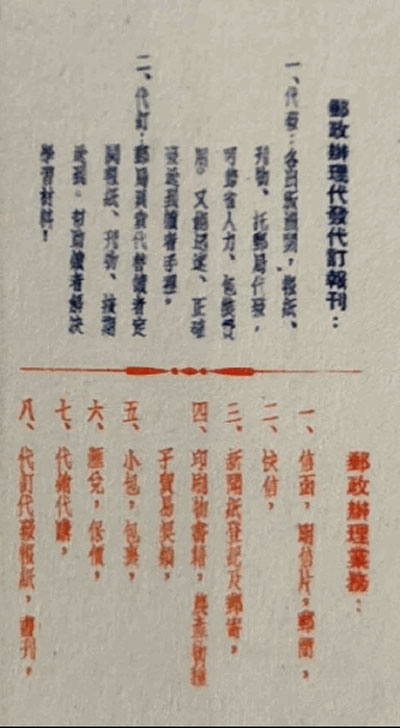 郵政辦理代發代訂報刊：
一、代發：各出版機關，報紙、
刊物、托郵局代發，
可節省人力、包裝費
用。又能迅速、正確
發送到讀者手裡。
二、代訂：郵局負責代替讀者定
閱報紙、刊物、按期
送到。幫助讀者解决
學習材料！
郵政辦理業務：
一、信函，明信片，郵簡，
二、快信，
三、新聞紙登記及郵寄，
四、印刷物書籍，農產物種
子貿易契類，
五、小包，包裹，
六、匯兌，保價，
七、代繪代購，
八、代訂代發報紙，書刊，